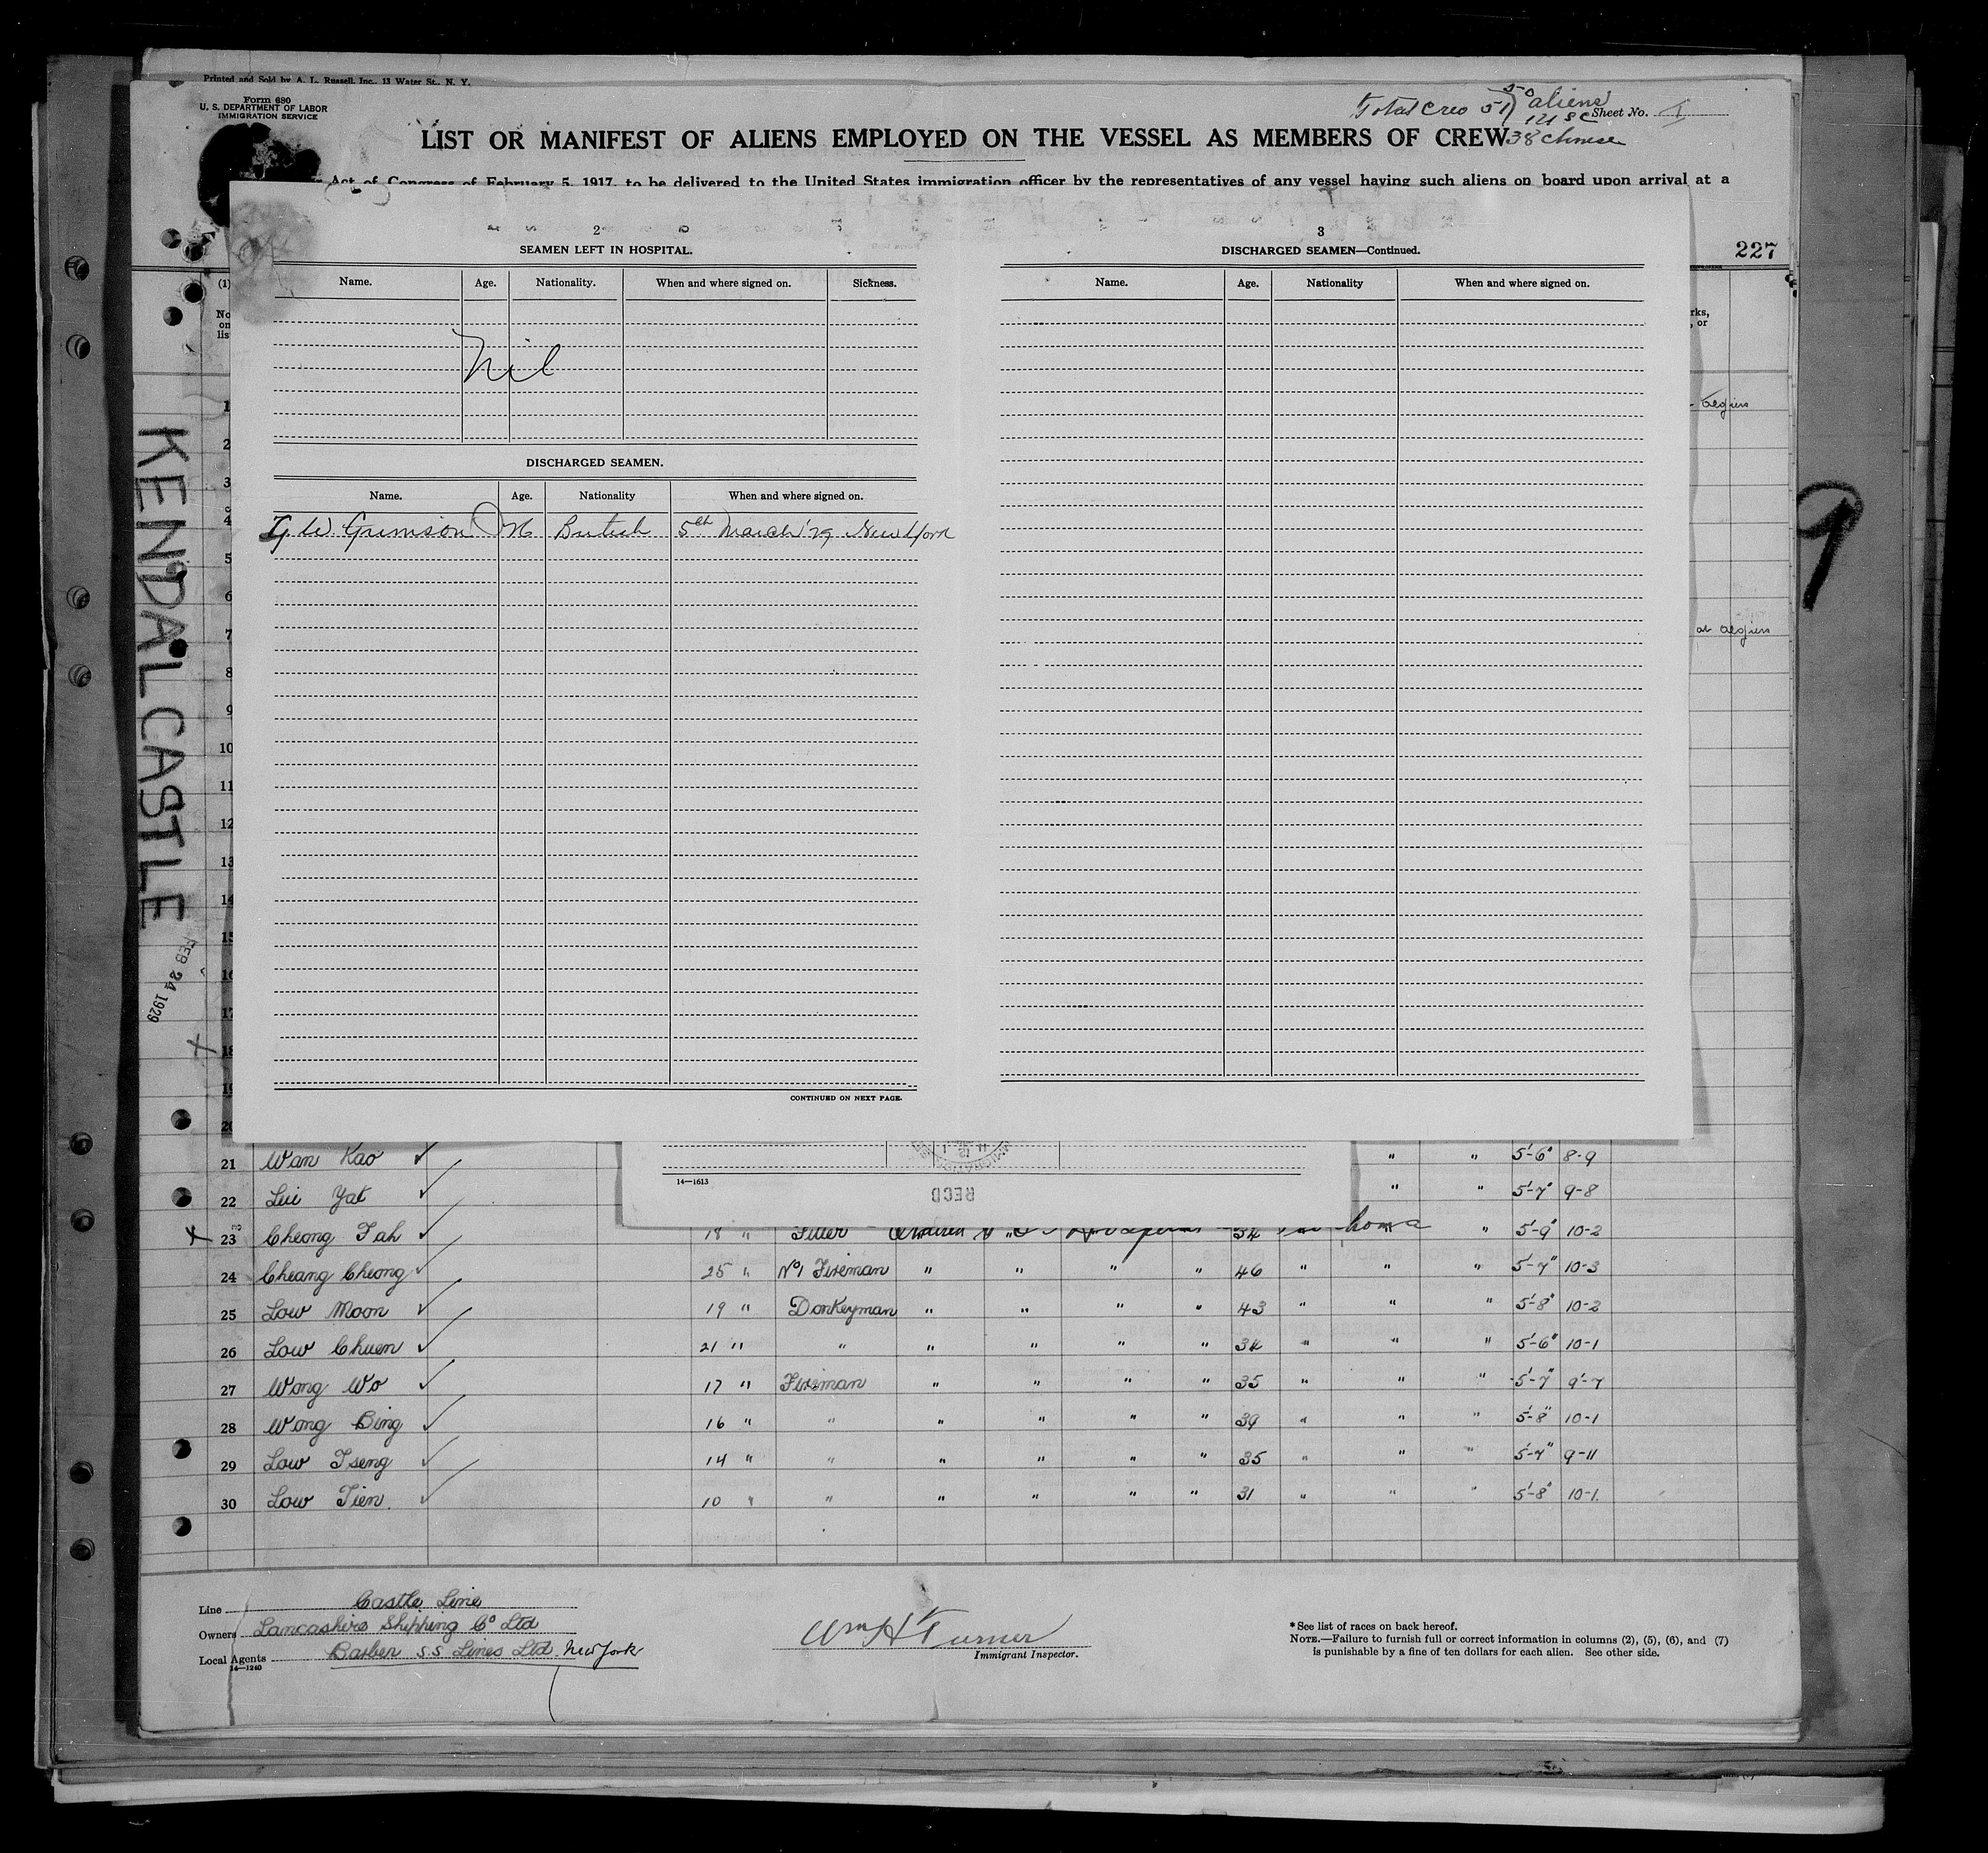 Printed and Sold by A. L. Russell, Inc., 13 Water St., N. Y.
Form 680
U. S. DEPARTMENT OF LABOR
IMMIGRATION SERVICE
Total Crew 51 50 aliens
1 U S C
38 Chinese
Sheet No. 1
LIST OR MANIFEST OF ALIENS EMPLOYED ON THE VESSEL AS MEMBERS OF CREW
Act of Congress of February 5, 1917, to be delivered to the United States immigration officer by the representatives of any vessel having such aliens on board upon arrival at a
227
2
SEAMEN LEFT IN HOSPITAL.
Name. Age. Nationality. When and where signed on. Sickness.
Nil
DISCHARGED SEAMEN.
Name. Age. Nationality When and where signed on.
G. W. Grimson 26 British 5th March '29 New York
CONTINUED ON NEXT PAGE.
3
DISCHARGED SEAMEN—Continued.
Name. Age. Nationality When and where signed on.
(1)
rks,
, or
Algiers
at Algiers
1
2
3
4
5
6
7
8
9
10
11
12
13
14
15
16
17
18
19
20
KENDAL CASTLE
FEB 24 1929
9
14—1613
RECD
21 Wan Kao " " 5'-6" 8-9
22 Lui Yat " " 5'-7" 9-8
23 Cheong Fah 18 " Fitter " 34 " " 5'-9" 10-2
24 Cheang Cheong 25 " No 1 Fireman " " " " 46 " " " 5'-7" 10-3
25 Low Moon 19 " Donkeyman " " " " 43 " " 5'-8" 10-2
26 Low Chuen 21 " " " " " " 34 " " " 5'-6" 10-1
27 Wong Wo 17 " Fireman " " " " 35 " " " 5'-7" 9-7
28 Wong Bing 16 " " " " " " 39 " " " 5'-8" 10-1
29 Low Tseng 14 " " " " " " 35 " " " 5'-7" 9-11
30 Low Tien. 10 " " " " " " 31 " " " 5'-8" 10-1.
Line Castle Line
Owners Lancashire Shipping Co Ltd
Local Agents Barber S.S. Lines Ltd New York
14—1240
Wm H Turner
Immigrant Inspector.
*See list of races on back hereof.
NOTE.—Failure to furnish full or correct information in columns (2), (5), (6), and (7)
is punishable by a fine of ten dollars for each alien. See other side.